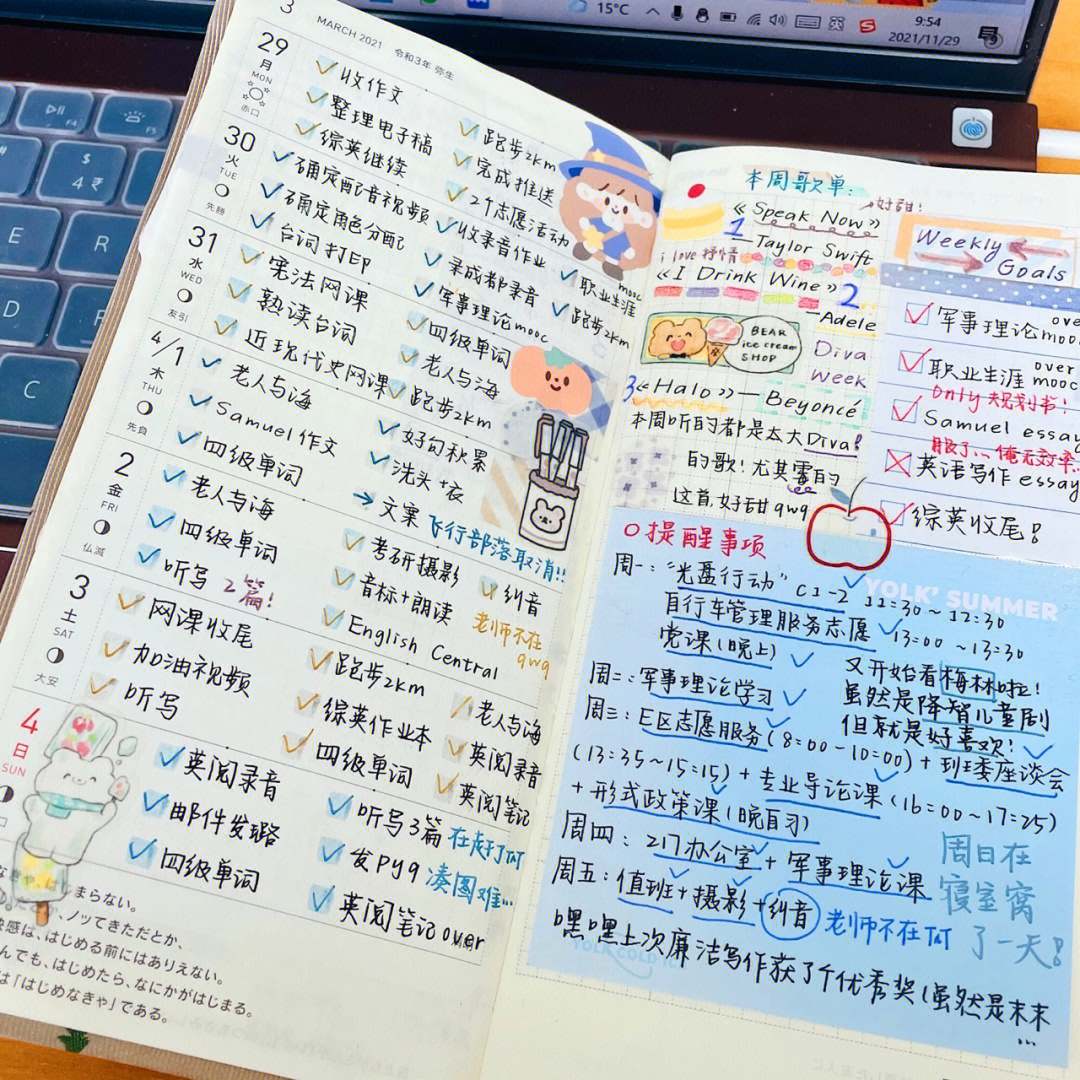 15°C
9:54
2021/11/29
3
MARCH 2021 令和3年 弥生
29
月
MON
赤口
收作文
整理电子稿
综英继续
跑步2km
完成推送
2个志愿活动
30
火
TUE
先勝
确定配音视频
确定角色分配
台词打印
收录音作业
录成都录音
军事理论mooc
职业生涯mooc
跑步2km
31
水
WED
友引
宪法网课
熟读台词
近现代史网课
四级单词
老人与海
跑步2km
4/1
木
THU
先負
老人与海
Samuel作文
四级单词
好句积累
洗头+衣
→文案 飞行部落取消!!
2
金
FRI
仏滅
老人与海
四级单词
听写 2篇!
考研摄影
音标+朗读
English Central
纠音
老师不在
qwq
3
土
SAT
大安
网课收尾
加油视频
听写
跑步2km
综英作业本
四级单词
老人与海
英阅录音
英阅笔记
4
日
SUN
英阅录音
邮件发璐
四级单词
听写3篇 在赶了
发pyq 凑图难…
英阅笔记over
なきや、はじまらない。
、ノッてきただとか、
快感は、はじめる前にはありえない。
んでも、はじめたら、なにかがはじまる。
は「はじめなきゃ」である。
本周歌单:
《Speak Now》
好甜!
1 Taylor Swift
i love 抒情
《I Drink Wine》 2
—Adele
BEAR
ice cream
SHOP
Diva
Week
3《Halo》— Beyoncé
本周听的都是太大Diva!
的歌!尤其零的
这首,好甜qwq
Weekly
Goals
军事理论mooc
over
职业生涯mooc
over
Only 规划书!
Samuel essay
服了…俺无效率…
英语写作essay
综英收尾!
提醒事项
YOLK' SUMMER
周一:“光盘行动” C1-2 11:30~12:30
自行车管理服务志愿 13:00~13:30
党课(晚上)
又开始看梅林啦!
虽然是降智儿童剧
但就是好喜欢!
周二:军事理论学习
周三:E区志愿服务(8:00-10:00)+班委座谈会
(13:35~15:15)+专业导论课(16:00~17:25)
+形式政策课(晚自习)
周四:217办公室+军事理论课
周五:值班+摄影+纠音 老师不在
周日在
寝室窝
了一天!
嘿嘿上次廉洁写作获了个优秀奖(虽然是末末
…
YOLK COLD IC